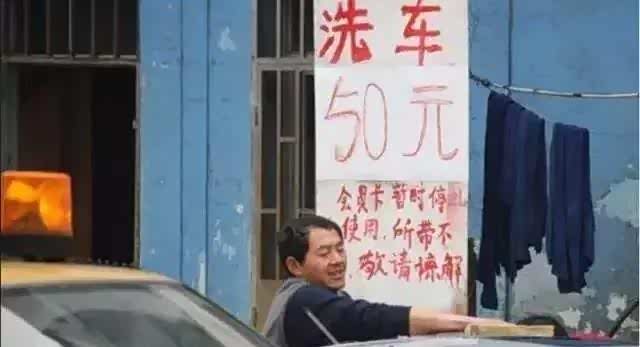 洗车
50元
会员卡暂时停止
使用,所带不
敬请谅解